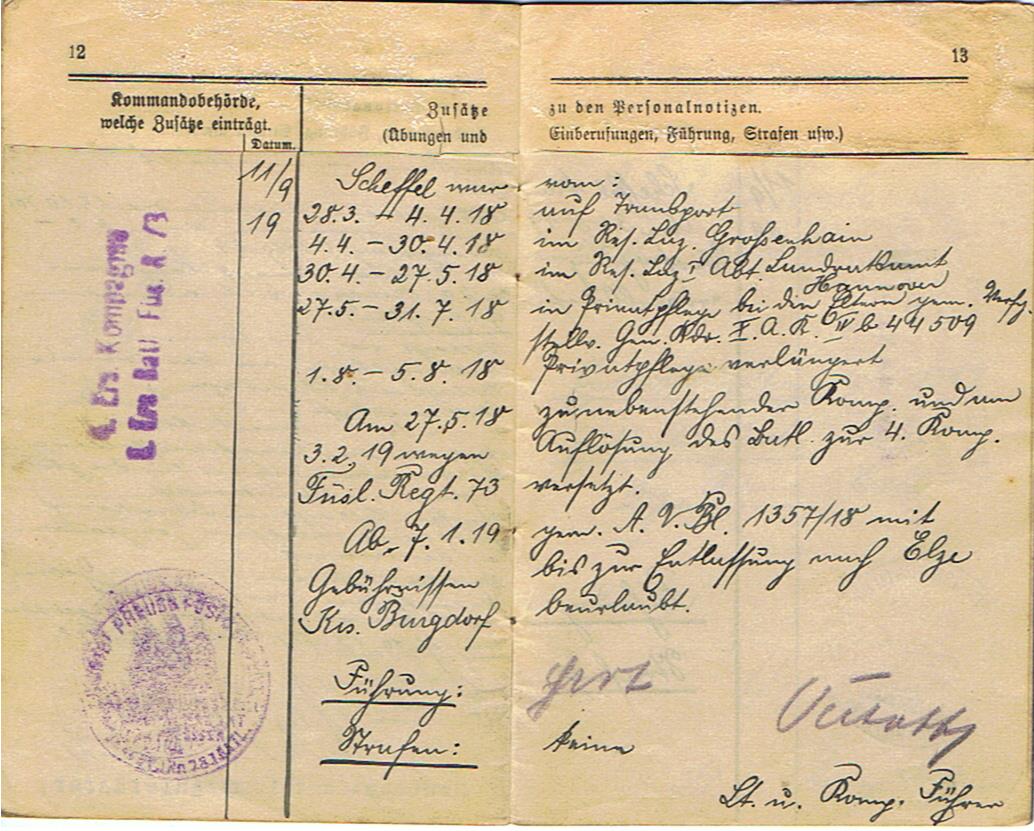 12
13
Kommandobehörde,
welche Zusätze einträgt.
Datum.
Zusätze zu den Personalnotizen.
(Übungen und Einberufungen, Führung, Strafen usw.)
11/9 Scheffel war vom:
19 28.3. – 4.4.18 auf Transport
4.4. – 30.4.18 im Res. Laz. Großenhain
30.4 – 27.5.18 im Res. Laz. I Abt. Landratsamt
Hannover
27.5. – 31.7.18 in Privatpflege bei den Eltern gem. Verfg.
stellv. Gen. Kdo. X. A. K. IV b 44509
1.8. – 5.8.18 Privatpflege verlängert
Am 27.5.18 zu nebenstehender Komp. und am
3.2.19 wegen Auflösung des Batl. zur 4. Komp.
Füsl. Regt. 73 versetzt.
Ab 7.1.19 gem. A. V. Bl. 1357/18 mit
Gebührnissen bis zur Entlassung nach Elze
Krs. Burgdorf beurlaubt.
Führung:
Strafen: keine
Lt. u. Komp. Führer
Ers. Kompagnie
Ers Batl Füs. R 73